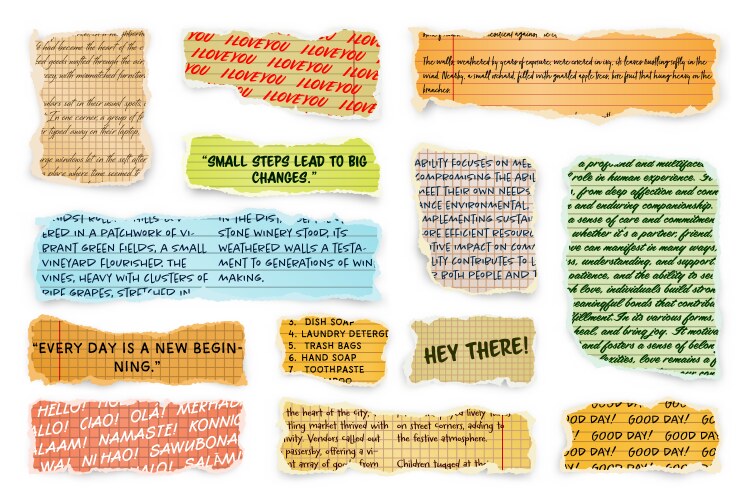 had become the heart of the
goods wafted through the
cozy with mismatched furniture
in their usual spots,
In one corner, a group of
typed away on their laptop,
large windows let in the soft
a place where time seemed
YOU I LOVE YOU I LOVE YOU
I LOVE YOU I LOVE YOU I LOVE YOU
YOU I LOVE YOU I LOVE YOU I LOVE YOU
I LOVE YOU I LOVE
I LOVE YOU
vertical against
The walls, weathered by years of exposure, were covered in ivy, its leaves rustling softly in the
wind. Nearby, a small orchard, filled with gnarled apple trees, bore fruit that hung heavy on the
branches.
"SMALL STEPS LEAD TO BIG
CHANGES."
ABILITY FOCUSES ON MEE
COMPROMISING THE ABIL
MEET THEIR OWN NEEDS
NCE ENVIRONMENTAL
MPLEMENTING SUSTAI
ORE EFFICIENT RESOUR
ITIVE IMPACT ON COM
LITY CONTRIBUTES TO
BOTH PEOPLE AND T
a profound and multiface
role in human experience. It
, from deep affection and conn
e and enduring companionship.
sense of care and commitmen
whether it's a partner, friend,
ve can manifest in many ways,
ss, understanding, and support
patience, and the ability to see
h love, individuals build stron
eaningful bonds that contribu
fillment. In its various forms,
heal, and bring joy. It motiva
and fosters a sense of belon
exities, love remains a f
MIDST ROLLING HILLS
ERED IN A PATCHWORK OF VI-
BRANT GREEN FIELDS, A SMALL
VINEYARD FLOURISHED. THE
VINES, HEAVY WITH CLUSTERS OF
RIPE GRAPES, STRETCHED IN
IN THE DISTANCE,
STONE WINERY STOOD, ITS
WEATHERED WALLS A TESTA-
MENT TO GENERATIONS OF WIN
MAKING.
"EVERY DAY IS A NEW BEGIN-
NING."
3. DISH SOAP
4. LAUNDRY DETERGE
5. TRASH BAGS
6. HAND SOAP
7 TOOTHPASTE
HEY THERE!
HELLO!
LLO! CIAO! OLA! MERHAB
ALAAM! NAMASTE! KONNIC
WAI NI HAO! SAWUBONA
SALAM
the heart of the city,
tling market thrived with
ivity. Vendors called out
passersby, offering a vi-
nt array of goods from
played lively
on street corners, adding to
the festive atmosphere.
Children tugged at the
GOOD DAY! GOOD DAY! GO
GOOD DAY! GOOD DAY!
GOOD DAY! GOOD DAY! GOO
GOOD DAY! GOOD DAY!